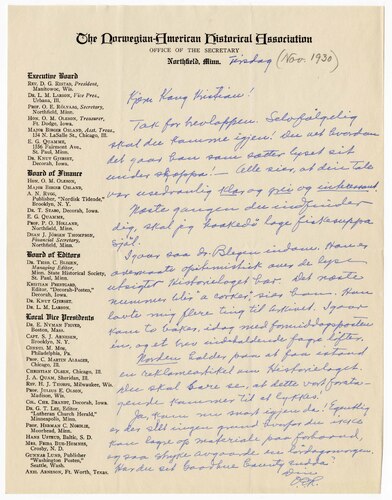 The Norwegian-American Historical Association
OFFICE OF THE SECRETARY
Northfield, Minn.
Tirsdag (Nov. 1930)
Executive Board
REV. D. G. RISTAD, President,
Manitowoc, Wis.
DR. L. M. LARSON, Vice Pres.,
Urbana, Ill.
PROF. O. E. RÖLVAAG, Secretary,
Northfield, Minn.
HON. O. M. OLESON, Treasurer,
Ft. Dodge, Iowa.
MAJOR BIRGER OSLAND, Asst. Treas.,
134 N. LaSalle St., Chicago, Ill.
E. G. QUAMME,
1356 Fairmont Ave.,
St. Paul, Minn.
DR. KNUT GJERSET,
Decorah, Iowa.
Board of Finance
HON. O. M. OLESON,
MAJOR BIRGER OSLAND,
A. N. RYGG,
Publisher, "Nordisk Tidende,"
Brooklyn, N. Y.
DR. T. STABO, Decorah, Iowa.
E. G. QUAMME,
PROF. P. O. HOLLAND,
Northfield, Minn.
DEAN J. JÖRGEN THOMPSON,
Financial Secretary,
Northfield, Minn.
Board of Editors
DR. THEO. C. BLEGEN,
Managing Editor,
Minn. State Historical Society,
St. Paul, Minn.
KRISTIAN PRESTGARD,
Editor, "Decorah-Posten,"
Decorah, Iowa.
DR. KNUT GJERSET,
DR. L. M. LARSON
Local Vice Presidents
DR. E. NYMAN FIGVED,
Boston, Mass.
CAPT. S. J. ARNESEN,
Brooklyn, N. Y.
CONSUL M. MOE,
Philadelphia, Pa.
PROF. C. MARTIN ALSAGER,
Chicago, Ill.
CHRISTIAN OLSEN, Chicago, Ill.
J. A. QUAM, Sheridan, Ill.
REV. H. J. THORPE, Milwaukee, Wis.
PROF. JULIUS E. OLSON,
Madison, Wis.
COL. CHR. BRANDT, Decorah, Iowa.
DR. G. T. LEE, Editor
"Lutheran Church Herald,"
Minneapolis, Minn.
PROF. HERMAN C. NORDLIE,
Moorhead, Minn.
HANS USTRUD, Baltic, S. D.
MRS. FRIDA BUE-HOMNES,
Crosby, N. D.
GUNNAR LUND, Publisher
"Washington Posten,"
Seattle, Wash.
AXEL ARNESON, Ft. Worth, Texas.
Kjære Kong Kristian!
Tak for brevlappen. Selvfølgelig
skal du komme igjen! Du vet hvordan
det gaar ham som sætter lyset sit
under skjæppa! — Alle sier, at din Tale
var usedvanlig klar og grei og interessant.
Næste gangen du indfinder
dig, skal jeg kaakedø lage fiskesuppa
sjøl.
Igaar saa dr. Blegen indom. Han er
overmaate optimistisk over de lyse
utsigter Historielaget har. Det næste
nummer blir "a corker," sier han. Han
lovte mig flere ting til arkivet. Igaar
kom to bøker, idag med formiddagsposten
en, og et brev indeholdende fagre løfter.
Norden holder paa at faa istand
en reklameartikel om Historielaget.
Du skal bare se, at dette vort forsta-
gende kommer til at lykkes.
Ja, kom nu snart igjen da! Egentlig
er der slet ingen grund hvorfor du ikke
kan lage op materiale paa forhaand,
og saa stryke avgaarde en lørdagsmorgen.
Har du set Goodhue County endda?
Din
OER.